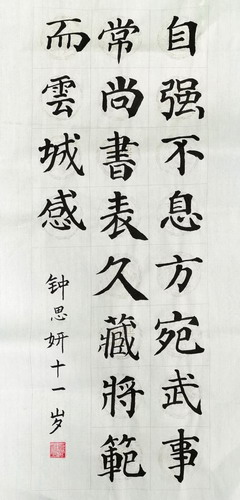 自强不息方宛武事
常尚書表久藏將範
而雲城感
钟思妍十一岁